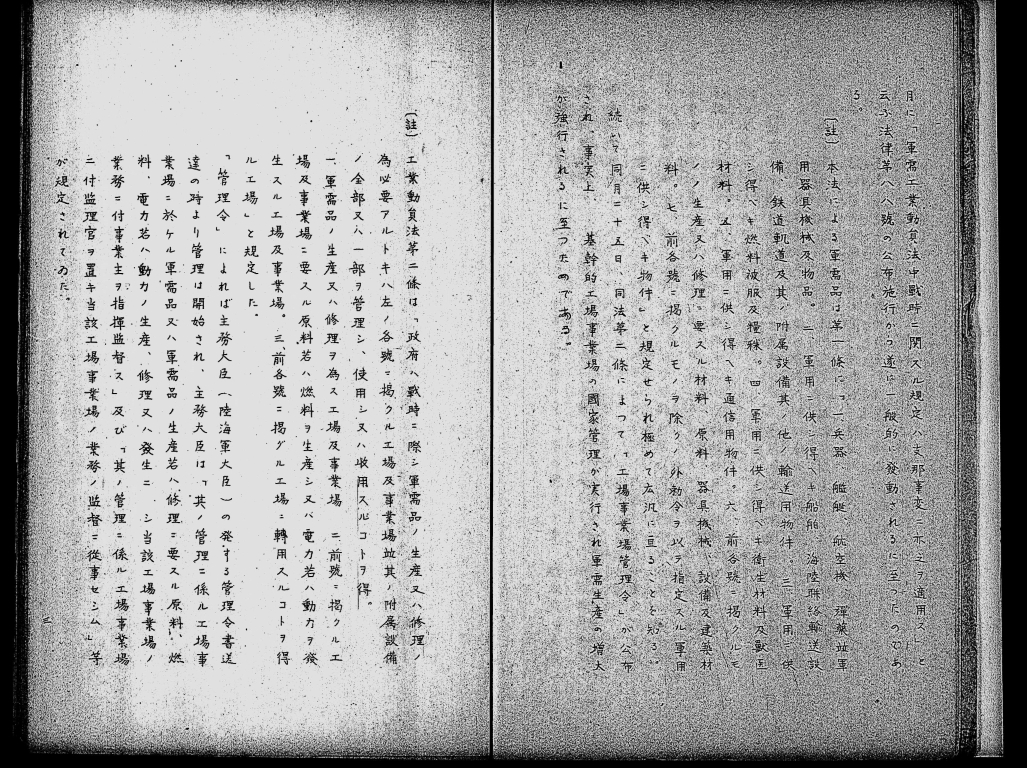 月に「軍需工業動員法中戰時ニ関スル規定ハ支那事変ニ亦之ヲ適用ス」と
云ふ法律第八八號の公布施行かつ遂に一般的に發動されるに至つたのであ
る。
〔註〕本法による軍需品は第一條に「一兵器、艦艇、航空機、彈藥竝軍
用器具機械及物品。二、軍用ニ供シ得ヘキ船舶、海陸聯絡輸送設
備、鉄道軌道及其ノ附属設備其ノ他ノ輸送用物件。三、軍用ニ供
シ得ヘキ燃料被服及糧秣。四、軍用ニ供シ得ヘキ衛生材料及獸医
材料。五、軍用ニ供シ得ヘキ通信用物件。六、前各號ニ掲クルモ
ノノ生産又ハ修理ニ要スル材料、原料、器具機械、設備及建築材
料。七、前各號ニ掲クルモノヲ除クノ外勅令ヲ以テ指定スル軍用
ニ供シ得ヘキ物件」と規定せられ極めて広汎に亘ることを知る。
続いて同月二十五日、同法第二條によつて「工場事業場管理令」が公布
され、事実上、基幹的工場事業場の國家管理が実行され軍需生産の増大
が強行されるに至つたのである。
〔註〕工業動員法第二條は「政府ハ戰時ニ際シ軍需品ノ生産又ハ修理ノ
為必要アルトキハ左ノ各號ニ掲クル工場及事業場竝其ノ附属設備
ノ全部又ハ一部ヲ管理シ、使用シ又ハ收用スルコトヲ得。
一、軍需品ノ生産又ハ修理ヲ為ス工場及事業場 二、前號ニ掲クル工
場及事業場ニ要スル原料若ハ燃料ヲ生産シ又ハ電力若ハ動力ヲ發
生スル工場及事業場。三、前各號ニ掲グル工場ニ轉用スルコトヲ得
ル工場」と規定した。
「管理令」によれば主務大臣（陸海軍大臣）の発する管理令書送
達の時より管理は開始され、主務大臣は「其ノ管理ニ係ル工場事
業場ニ於ケル軍需品又ハ軍需品ノ生産若ハ修理ニ要スル原料、燃
料、電力若ハ動力ノ生産、修理又ハ發生ニ シ当該工場事業場ノ
業務ニ付事業主ヲ指揮監督ス」及び「其ノ管理ニ係ル工場事業場
ニ付監理官ヲ置キ当該工場事業場ノ業務ノ監督ニ從事セシム」等
が規定されてゐた。
三